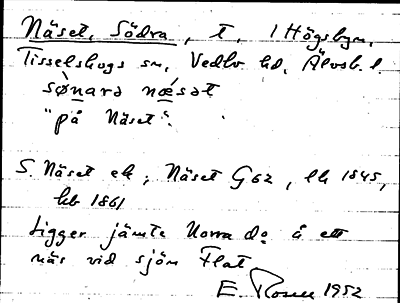 Näset, Södra, t, i Högsbyn,
Tisselskogs sn, Vedbo hd, Älvsb. l.
sø̀nara nǽsət
"på Näset".
S. Näset ek; Näset G62, lh 1845,
hb 1861
Ligger jämte Norra do å ett
näs vid sjön Flat
E. Rosen 1952